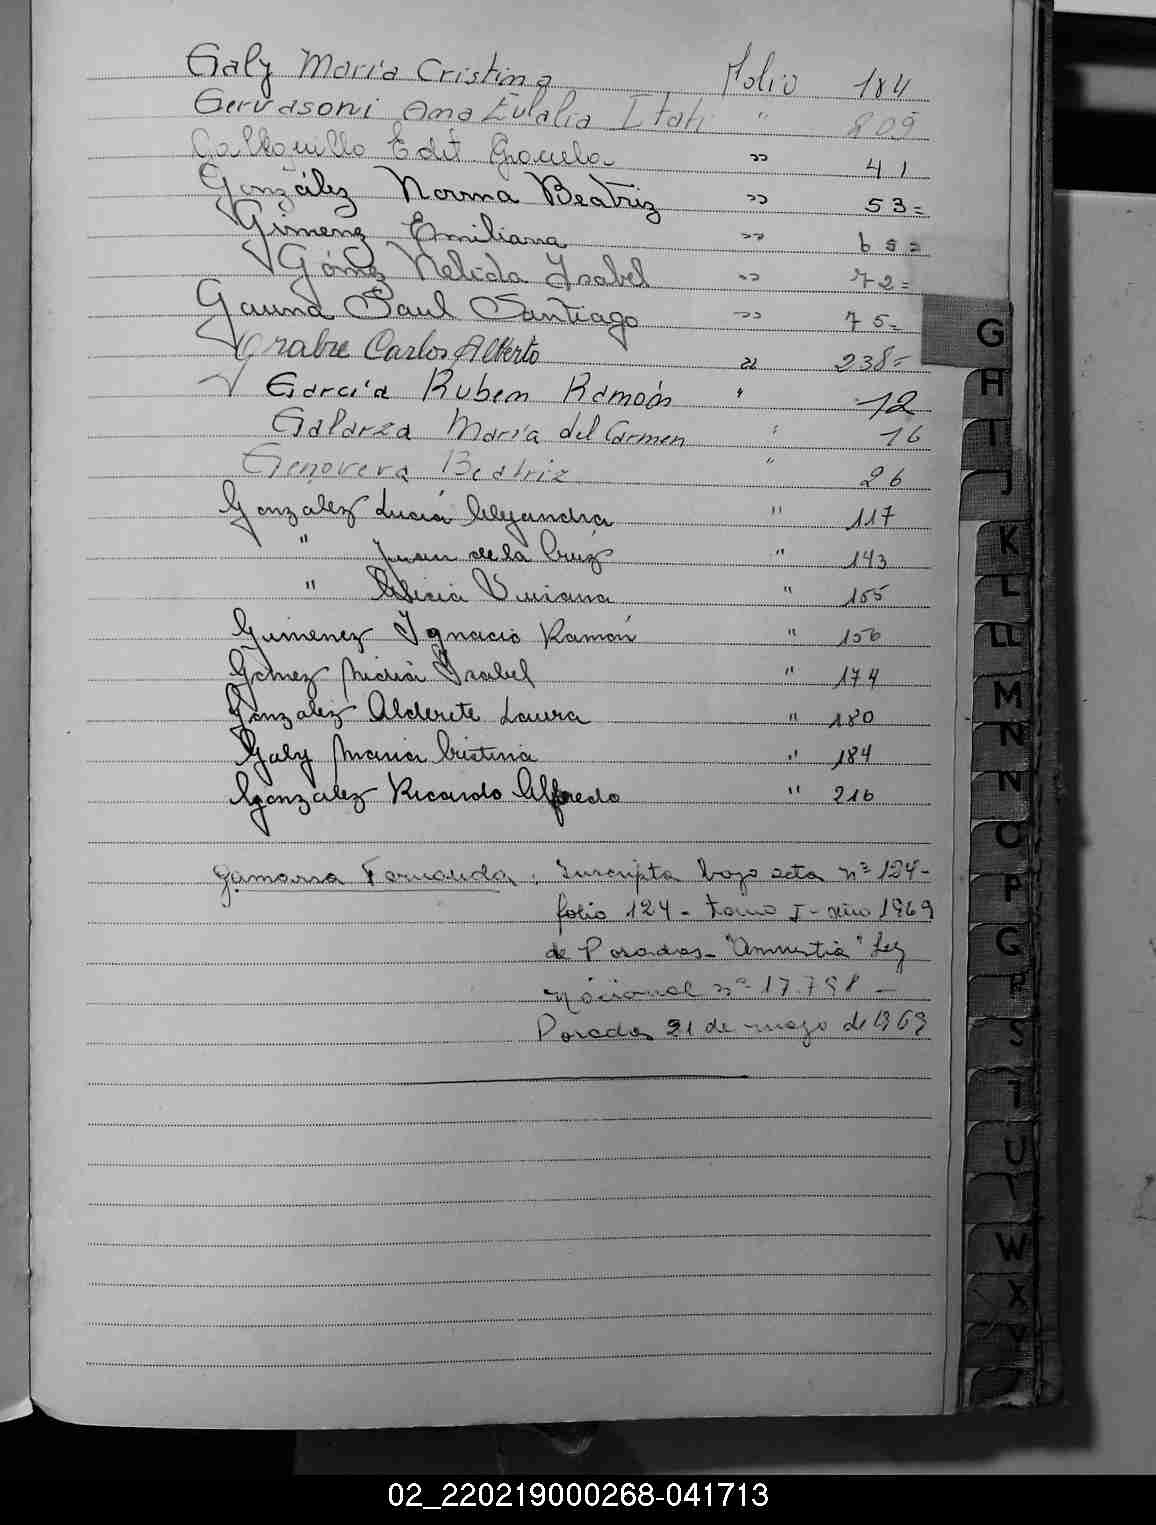 Galy Maria Cristina Folio 184
Gervasoni Ana Eulalia Itati " 809
Edit Graciela " 41
González Norma Beatriz " 53=
Gimenez Emiliana " 65=
Gómez Nelida Ysabel " 72=
Gauna Raul Santiago " 75=
Grabre Carlos Alberto " 238=
García Ruben Ramón " 12
Galarza María del Carmen " 16
Genovera Beatriz " 26
Gonzalez Lucia Alejandra " 117
" Juan de la Cruz " 143
" Alicia Viviana " 155
Gimenez Ygnacio Ramón " 156
Gómez Nidia Ysabel " 174
Gonzalez Alderete Laura " 180
Galy Maria Cristina " 184
Gonzalez Ricardo Alfredo " 216
Gamarra Fernanda, Inscripta bajo acta nº 124-
folio 124- tomo I- año 1969
de Posadas- "Amnistia" Ley
Nacional nº 17.798 -
Posadas 21 de mayo de 1969
G
H
I
J
K
L
LL
M
N
N
O
P
G
R
S
T
U
W
X
Y
02_220219000268-041713